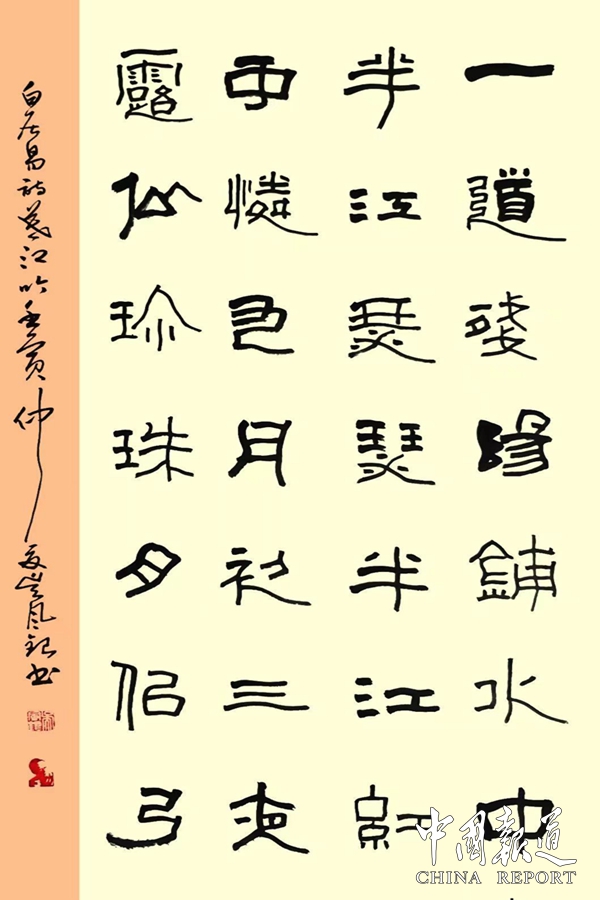 一道殘陽鋪水中
半江瑟瑟半江紅
可憐月初三夜
露似珍珠月似弓
白居易詩暮江吟壬寅仲夏書
中国报道
CHINA REPORT